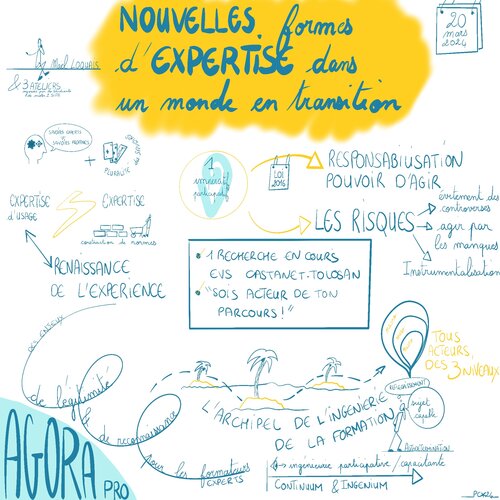 NOUVELLES formes
d'EXPERTISE dans
un monde en transition
20
mars
2024
& 3 ATELIERS
SAVOIRS EXPERTS
SAVOIRS PROFANES
+
EXPERTISE
D'USAGE
EXPERTISE
construction de normes
RENAISSANCE
DE L'EXPERIENCE
1
LOI
RESPONSABILISATION
POUVOIR D'AGIR
LES RISQUES
évitement des
controverses
agir par
les manques
Instrumentalisation
1 RECHERCHE EN COURS
EVS CASTANET-TOLOSAN
"SOIS ACTEUR DE TON
PARCOURS !"
DES ENJEUX
de légitimité
& de reconnaissance
pour les formateurs
EXPERTS
L'ARCHIPEL DE L'INGENIERIE
DE LA FORMATION
TOUS
ACTEURS,
DES 3 NIVEAUX
sujet
capable
AUTODETERMINATION
ingénierie participative / capacitante
CONTINUUM & INGENIUM
AGORA PRO